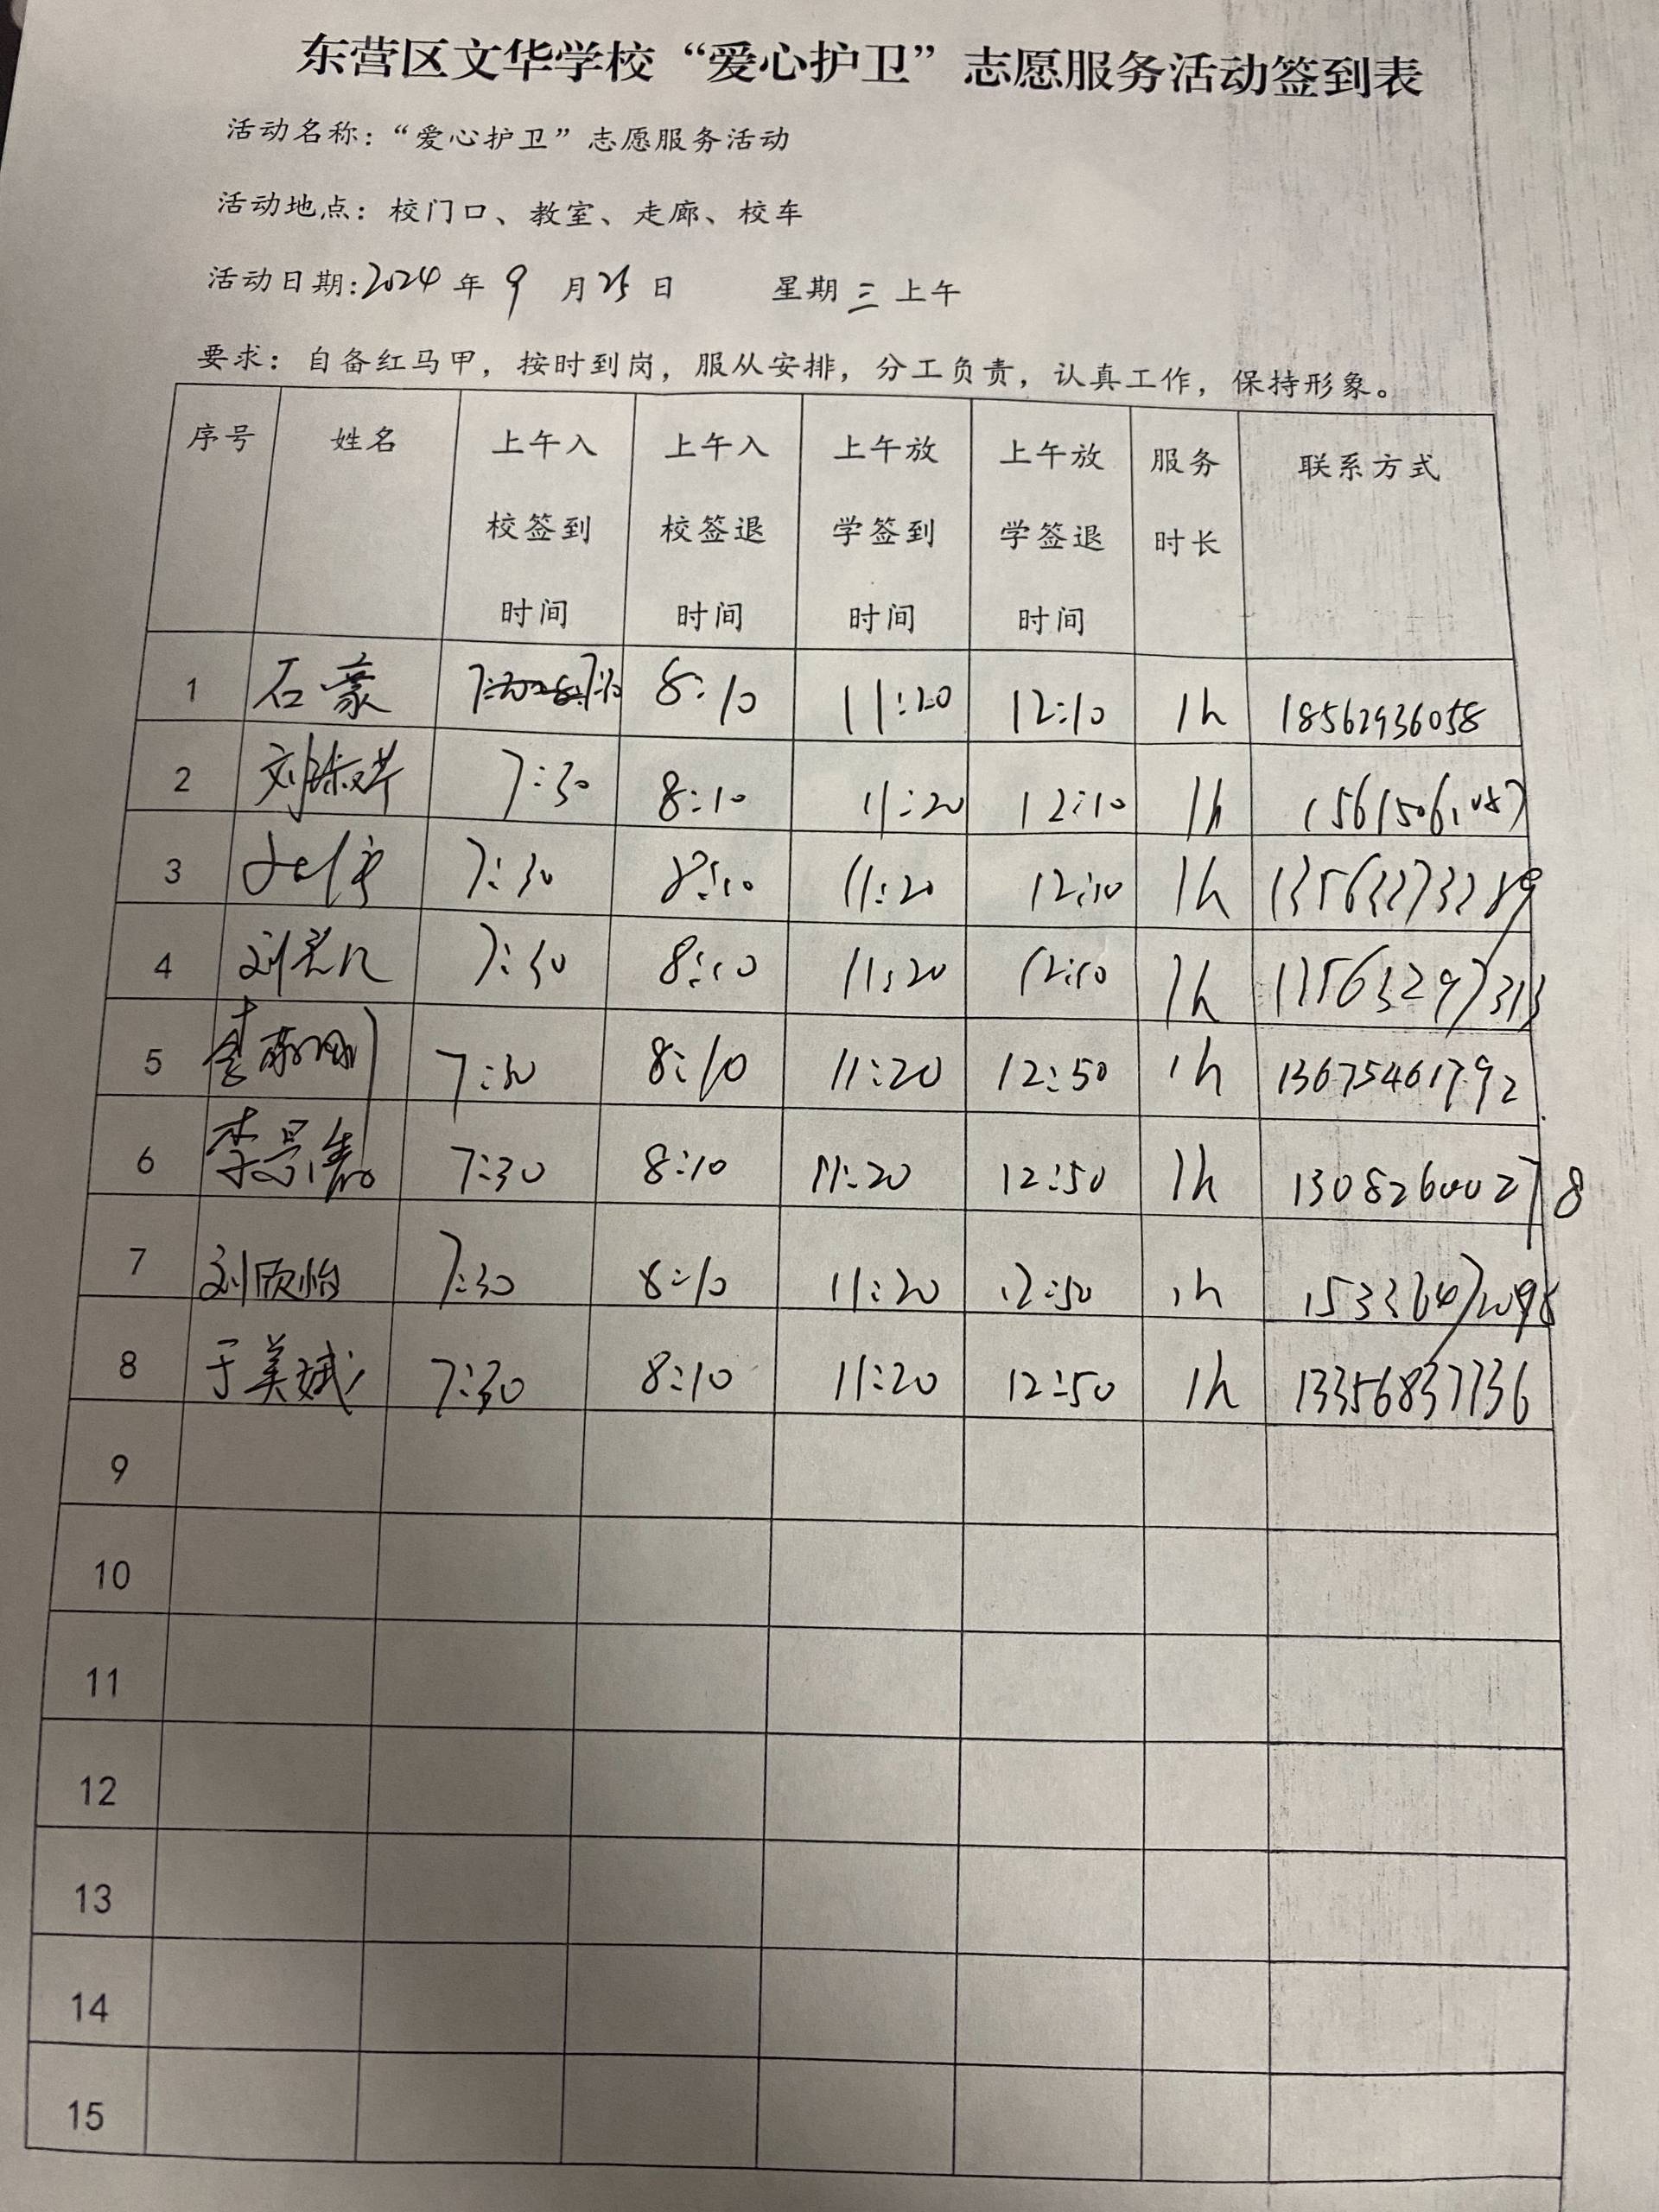 东营区文华学校“爱心护卫”志愿服务活动签到表
活动名称：“爱心护卫”志愿服务活动
活动地点：校门口、教室、走廊、校车
活动日期:2024年9月25日 星期三上午
要求：自备红马甲，按时到岗，服从安排，分工负责，认真工作，保持形象。
序号 姓名 上午入校签到时间 上午入校签退时间 上午放学签到时间 上午放学签退时间 服务时长 联系方式
1 石豪 7:30 8:10 11:20 12:10 1h 18562936058
2 刘淑芹 7:30 8:10 11:20 12:10 1h
3 7:30 8:10 11:20 12:10 1h 13563273289
4 刘 7:30 8:10 11:20 12:10 1h
5 李 7:30 8:10 11:20 12:50 1h 13675461792
6 李景 7:30 8:10 11:20 12:50 1h 13082600278
7 刘欣怡 7:30 8:10 11:20 12:50 1h 15336472098
8 于美斌 7:30 8:10 11:20 12:50 1h 13356837136
9
10
11
12
13
14
15